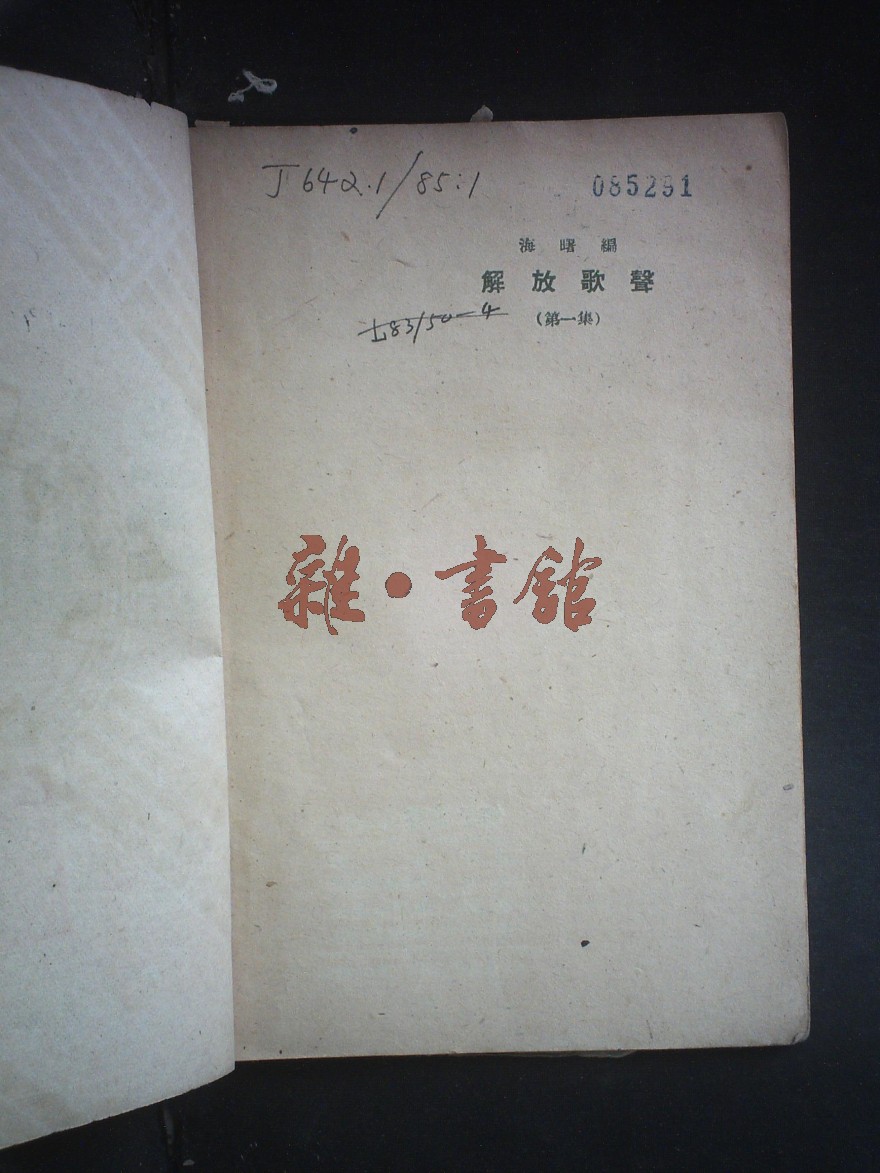 J642.1/85:1
085291
海曙編
解放歌聲
(第一集)
雜·書館